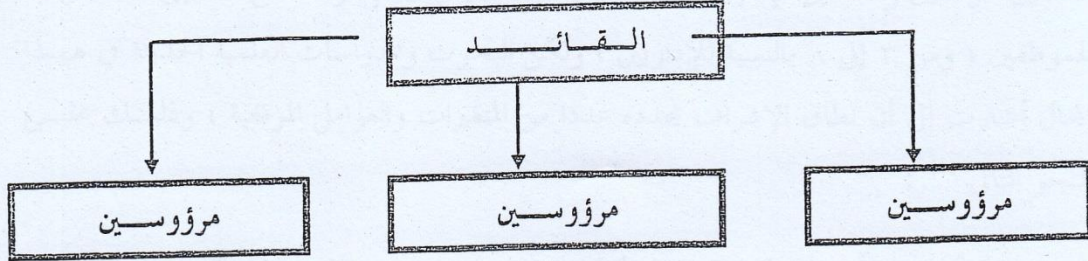 القائد
مرؤوسين
مرؤوسين
مرؤوسين